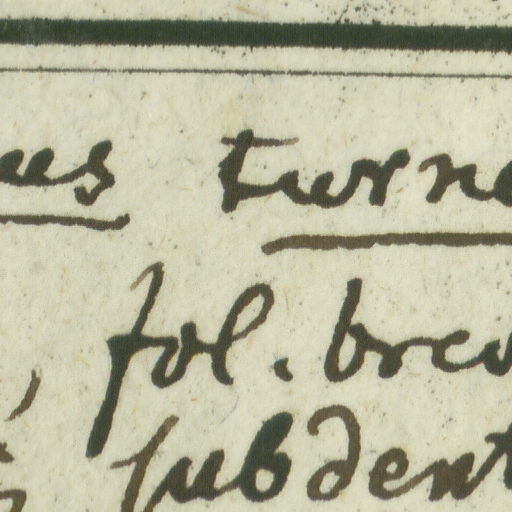 us turne
fol. brev
subdent